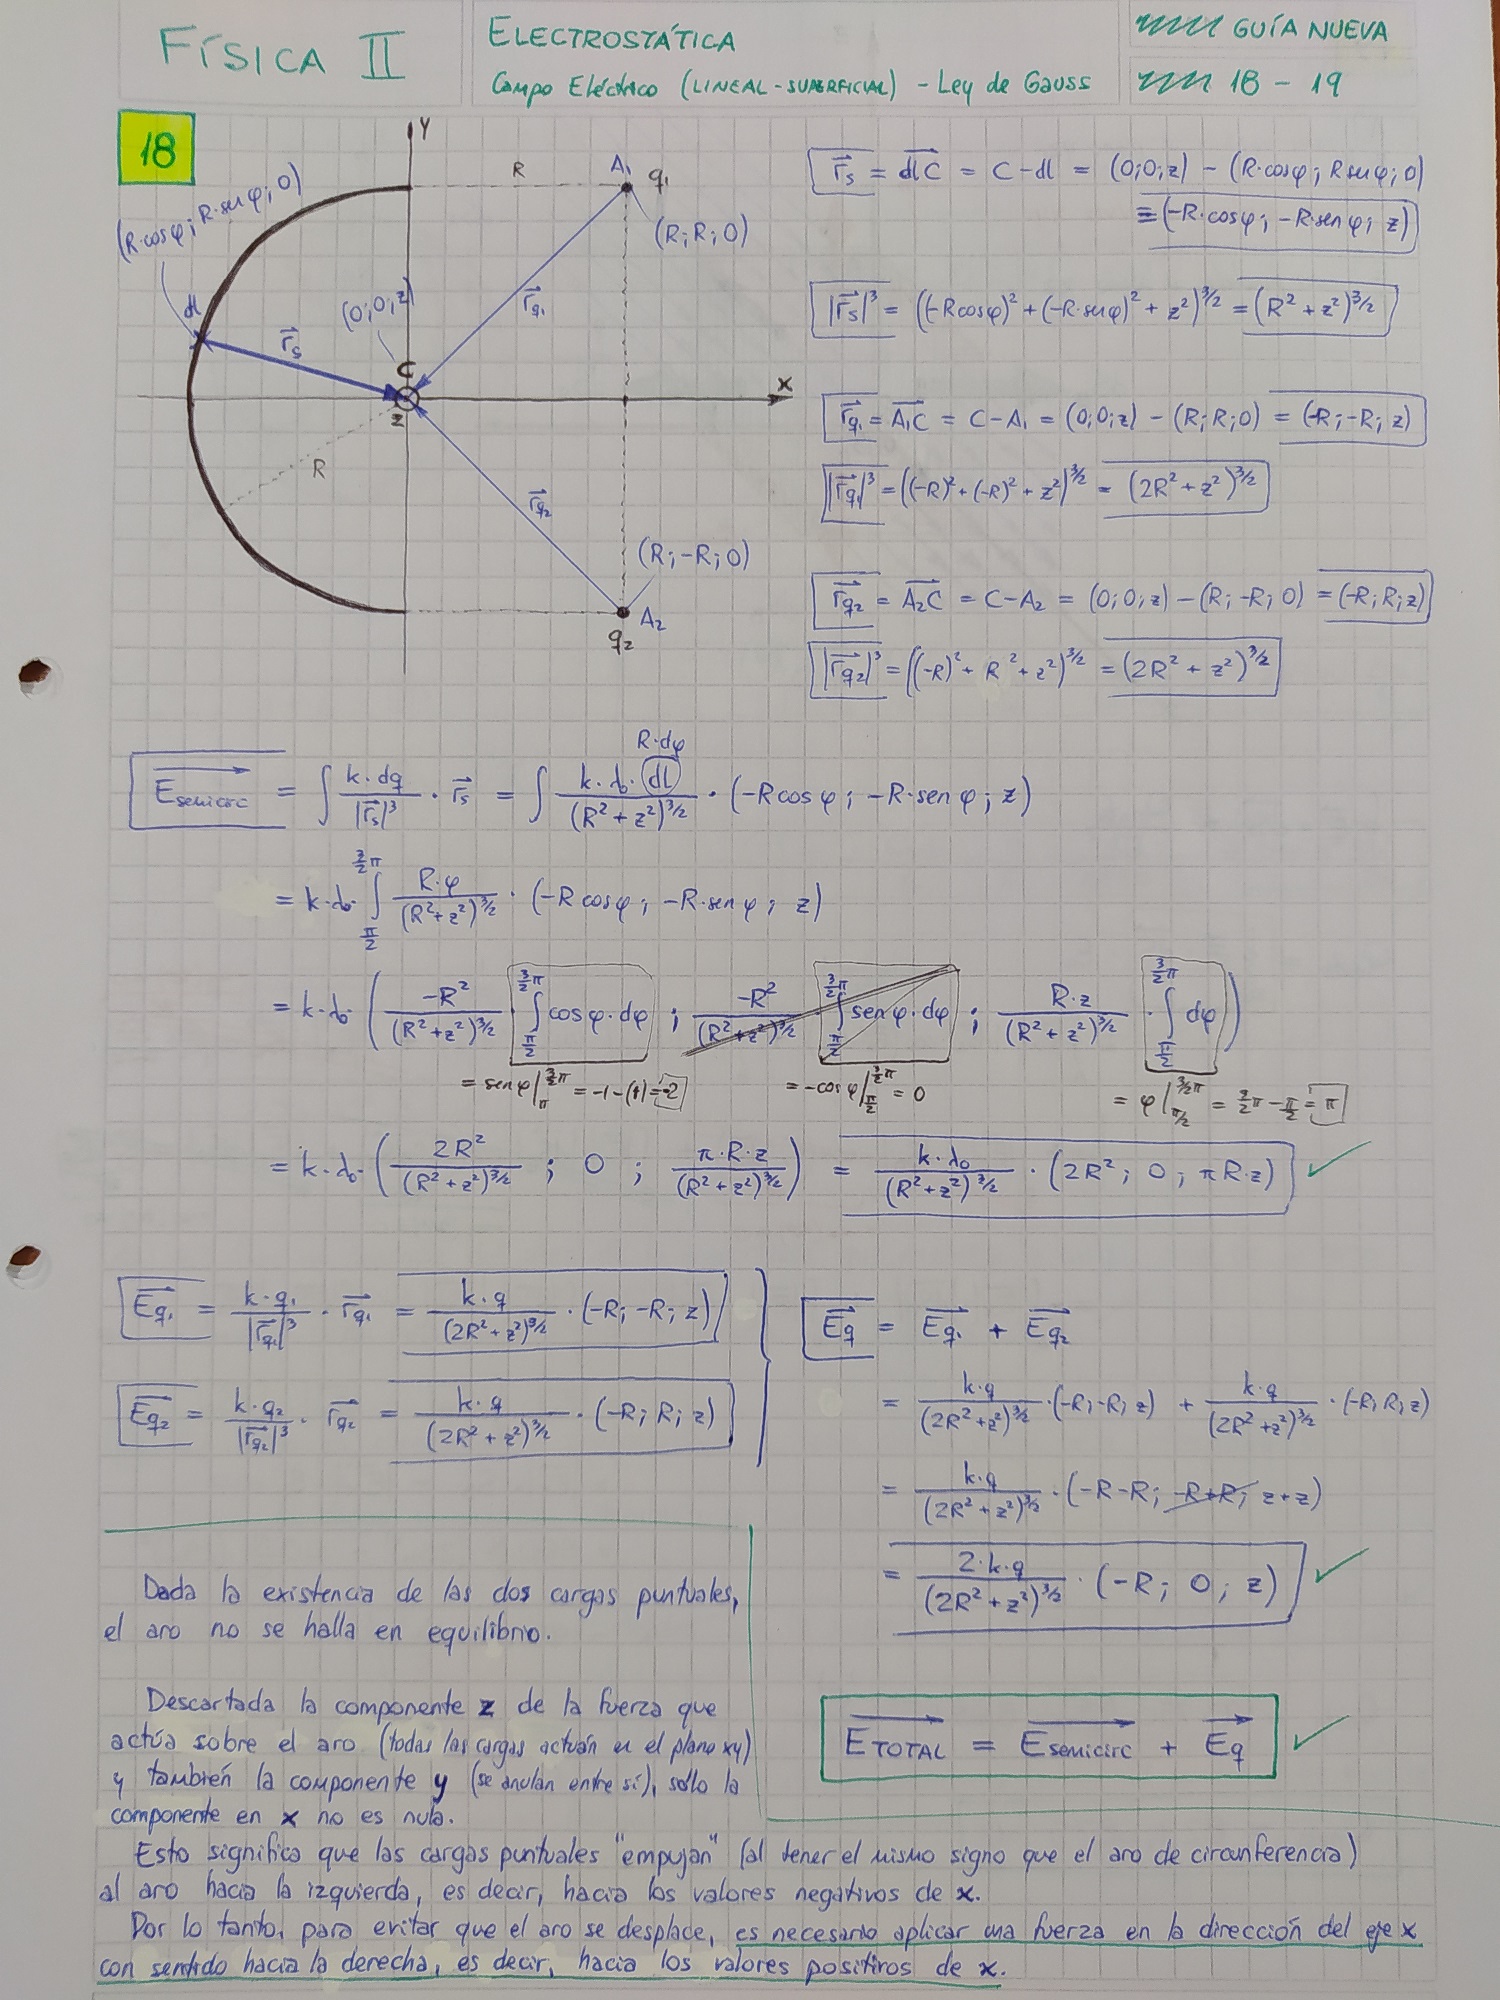 FÍSICA II
ELECTROSTÁTICA
Campo Eléctrico (LINEAL-SUPERFICIAL) - Ley de Gauss
GUÍA NUEVA
18 - 19
18
Y
(R·cosφ; R·sen φ; 0)
R
A₁ q₁
(R; R; 0)
dl
r⃗s
(0; 0; z)
r⃗q₁
C
z
x
R
r⃗q₂
(R; -R; 0)
A₂
q₂
r⃗s = dlC = C - dl = (0; 0; z) - (R·cosφ; R sen φ; 0)
= (-R·cosφ; -R·sen φ; z)
|r⃗s|³ = ((-R cosφ)² + (-R·sen φ)² + z²)^3/2 = (R² + z²)^3/2
r⃗q₁ = A₁C = C - A₁ = (0; 0; z) - (R; R; 0) = (-R; -R; z)
|r⃗q₁|³ = ((-R)² + (-R)² + z²)^3/2 = (2R² + z²)^3/2
r⃗q₂ = A₂C = C - A₂ = (0; 0; z) - (R; -R; 0) = (-R; R; z)
|r⃗q₂|³ = ((-R)² + R² + z²)^3/2 = (2R² + z²)^3/2
R·dφ
E semicirc = ∫ k·dq / |r⃗s|³ · r⃗s = ∫ k·λ₀·dl / (R² + z²)^3/2 · (-R cos φ; -R·sen φ; z)
= k·λ₀· ∫ π/2 3/2π R·φ / (R² + z²)^3/2 · (-R cosφ; -R·sen φ; z)
= k·λ₀· ( -R² / (R² + z²)^3/2 · ∫ π/2 3/2π cos φ·dφ ; -R² / (R² + z²)^3/2 ∫ π/2 3/2π sen φ·dφ ; R·z / (R² + z²)^3/2 · ∫ π/2 3/2π dφ )
= sen φ | π 3/2π = -1 - (1) = -2
= -cos φ | π/2 3/2π = 0
= φ | π/2 3/2π = 3/2π - π/2 = π
= k·λ₀· ( 2R² / (R² + z²)^3/2 ; 0 ; π·R·z / (R² + z²)^3/2 ) = k·λ₀ / (R² + z²)^3/2 · (2R²; 0; πR·z) ✓
Eq₁ = k·q₁ / |r⃗q₁|³ · r⃗q₁ = k·q / (2R² + z²)^3/2 · (-R; -R; z)
Eq₂ = k·q₂ / |r⃗q₂|³ · r⃗q₂ = k·q / (2R² + z²)^3/2 · (-R; R; z)
Eq = Eq₁ + Eq₂
= k·q / (2R² + z²)^3/2 · (-R; -R; z) + k·q / (2R² + z²)^3/2 · (-R; R; z)
= k·q / (2R² + z²)^3/2 · (-R-R; -R+R; z+z)
= 2·k·q / (2R² + z²)^3/2 · (-R; 0; z) ✓
E TOTAL = E semicirc + Eq ✓
Dada la existencia de las dos cargas puntuales,
el aro no se halla en equilibrio.
Descartada la componente z de la fuerza que
actúa sobre el aro (todas las cargas actúan en el plano xy)
y también la componente y (se anulan entre sí), sólo la
componente en x no es nula.
Esto significa que las cargas puntuales "empujan" (al tener el mismo signo que el aro de circunferencia)
al aro hacia la izquierda, es decir, hacia los valores negativos de x.
Por lo tanto, para evitar que el aro se desplace, es necesario aplicar una fuerza en la dirección del eje x
con sentido hacia la derecha, es decir, hacia los valores positivos de x.